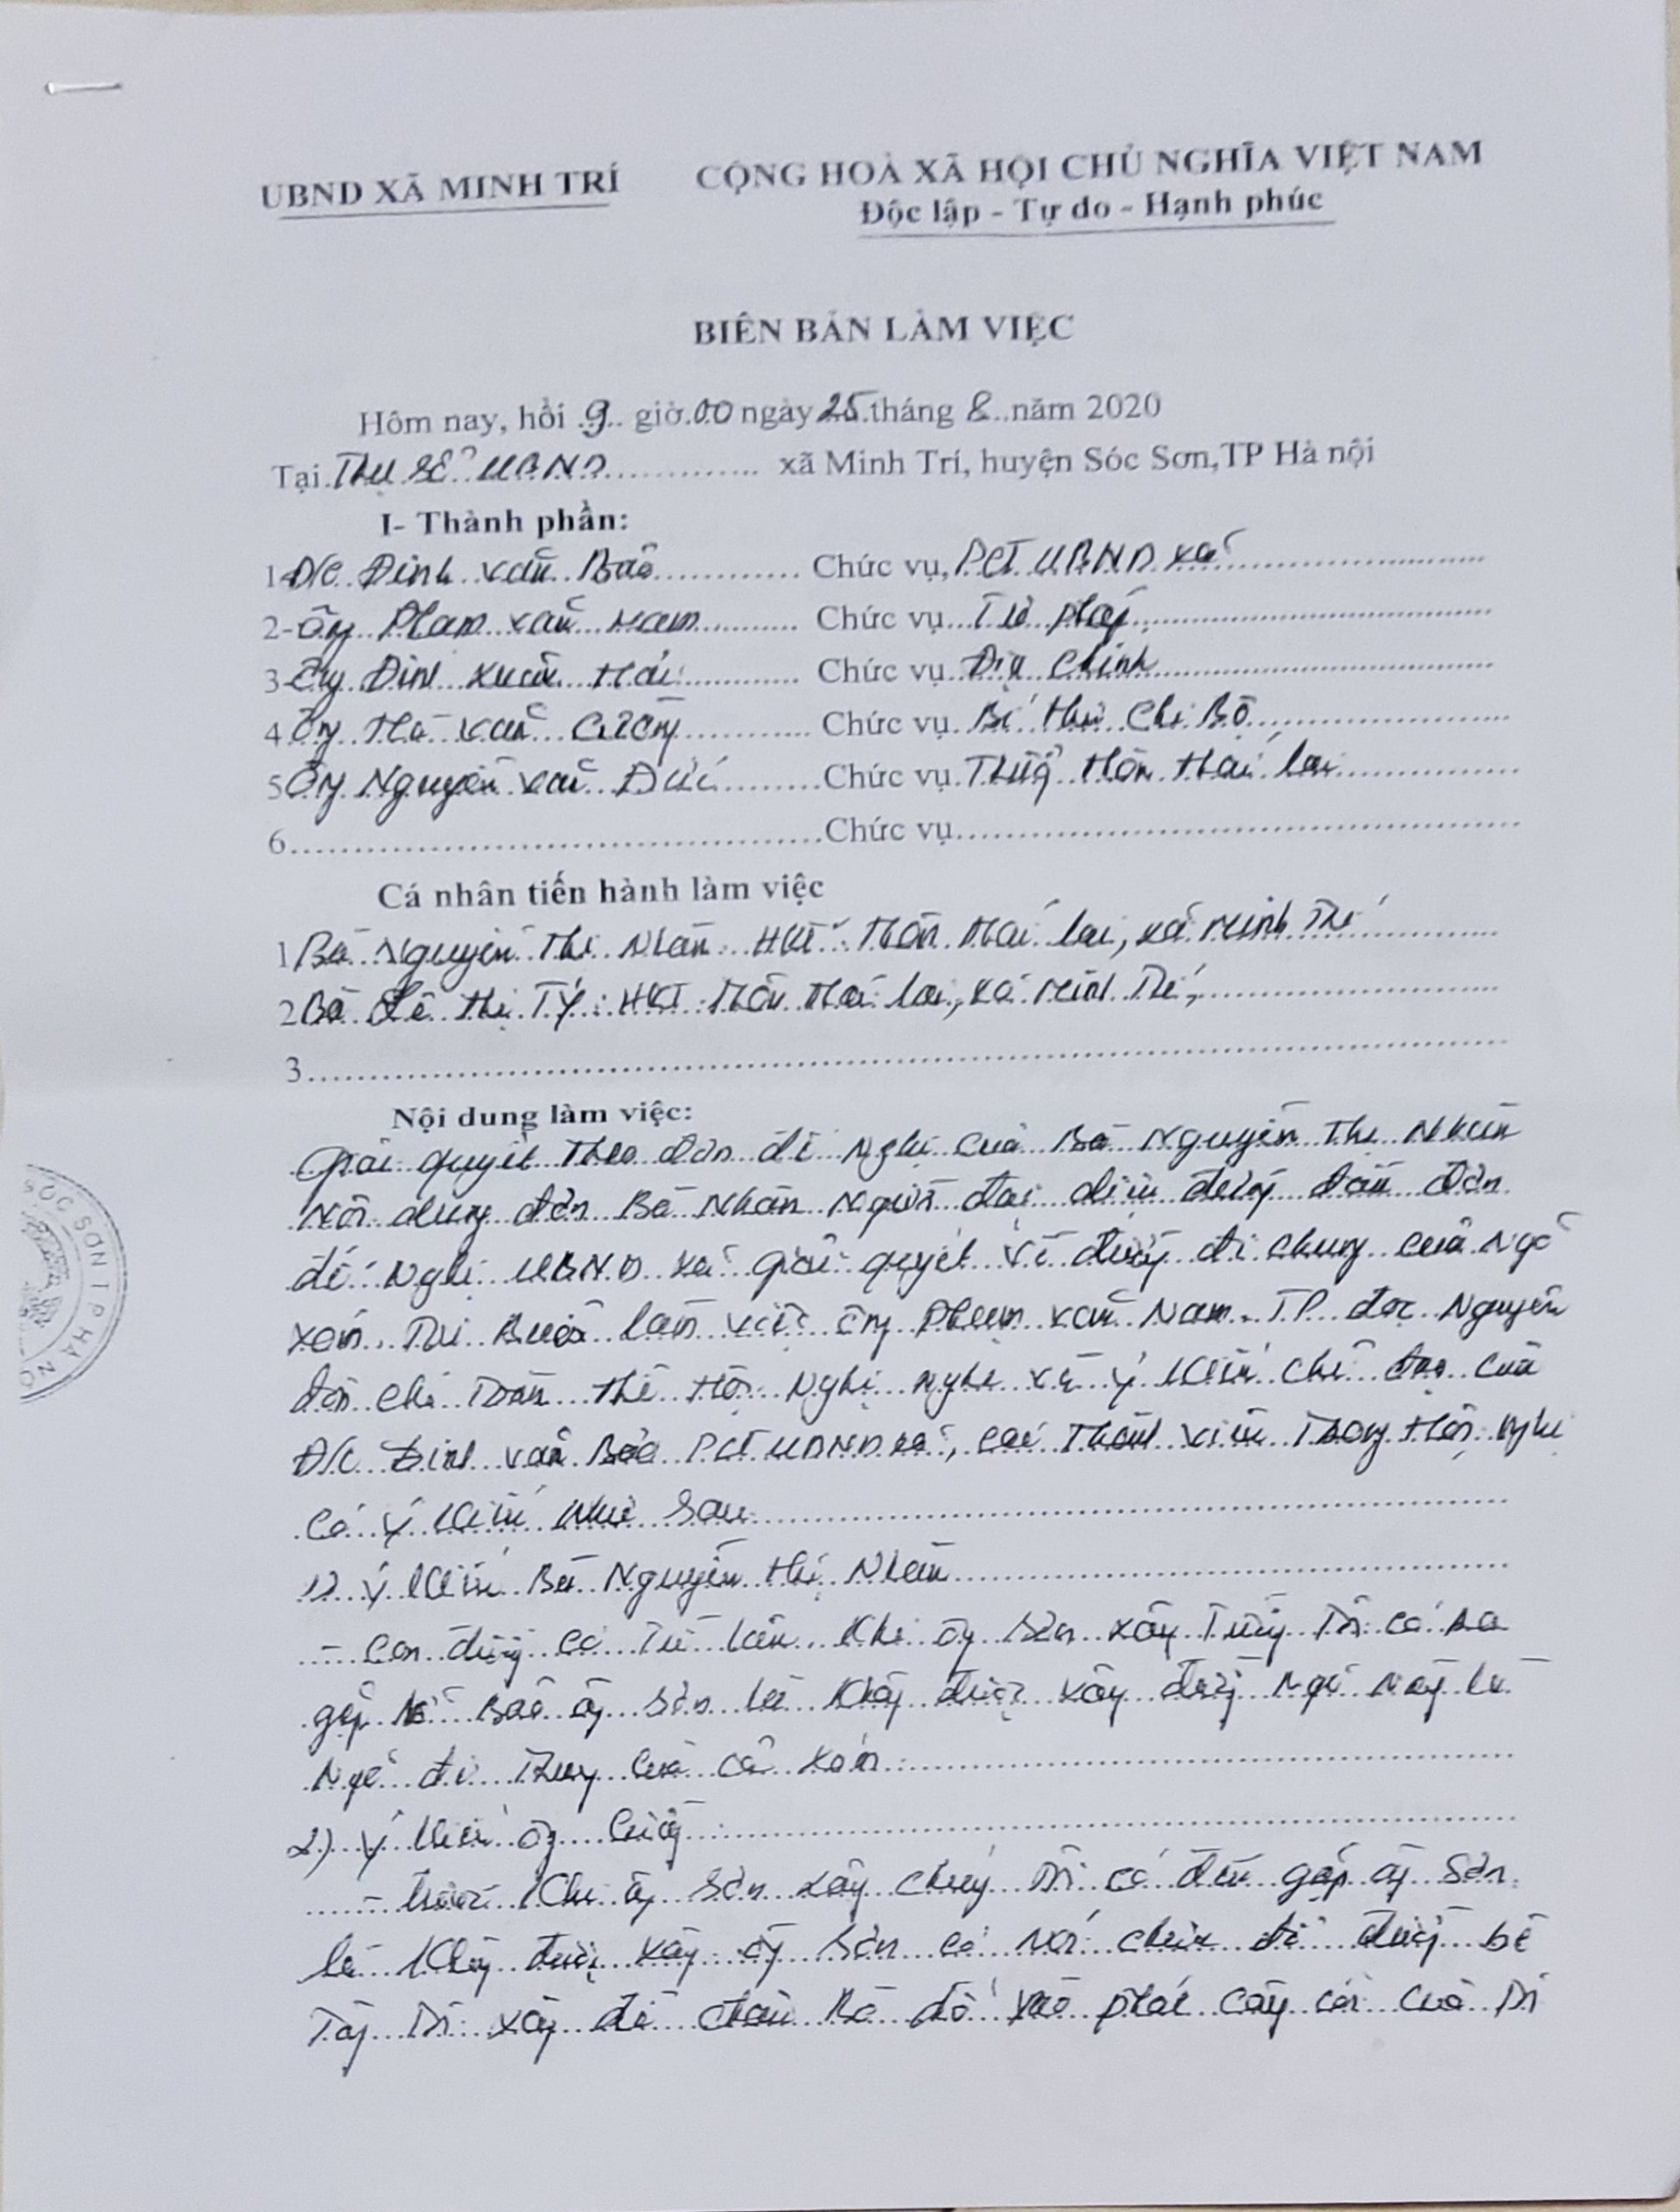 UBND XÃ MINH TRÍ
CỘNG HOÀ XÃ HỘI CHỦ NGHĨA VIỆT NAM
Độc lập - Tự do - Hạnh phúc
BIÊN BẢN LÀM VIỆC
Hôm nay, hồi 9 giờ 00 ngày 25 tháng 8 năm 2020
Tại Trụ Sở UBND xã Minh Trí, huyện Sóc Sơn,TP Hà nội
I- Thành phần:
1 Đ/c Đinh văn Bảo Chức vụ, PCT UBND xã
2- Ông Phạm văn Nam Chức vụ Tư pháp
3 Ông Đinh xuân Hải Chức vụ Địa chính
4 Ông Hà văn Cường Chức vụ Bí thư Chi Bộ
5 Ông Nguyễn văn Đức Chức vụ Trưởng thôn Thái lai
6 Chức vụ
Cá nhân tiến hành làm việc
1 Bà Nguyễn Thị Nhàn HKTT: thôn thái lai, xã minh Trí
2 Bà Lê thị Tý: HKTT thôn thái lai, xã minh Trí,
3
Nội dung làm việc:
Giải quyết Theo đơn đề Nghị của Bà Nguyễn Thị Nhàn
Nội dung đơn Bà Nhàn Người đại diện đứng đầu đơn
đề Nghị UBND xã giải quyết về đường đi chung của Ngõ
xóm. Tại Buổi làm việc ông Phạm văn Nam TP đọc Nguyên
đơn cho Toàn thể Hội Nghị nghe và ý kiến chỉ đạo của
Đ/c Đinh văn Bảo PCT UBND xã, các Thành viên Trong Hội nghị
có ý kiến như sau
1) ý kiến Bà Nguyễn thị Nhàn
- Con đường có Từ lâu Khi ông Sơn xây Tường Tôi có ra
gặp và Bảo ông Sơn là không được xây đường Ngõ này là
Ngõ đi chung của cả xóm
2) ý kiến ông Cường
- trước Khi ông Sơn xây chúng Tôi có đến gặp ông Sơn
là không được xây ông Sơn có nói chừa đề đường bê
Tông Tôi xây để chắn Bò đỡ vào phá cây cối của Tôi
SÓC SƠN T P HÀ NỘ